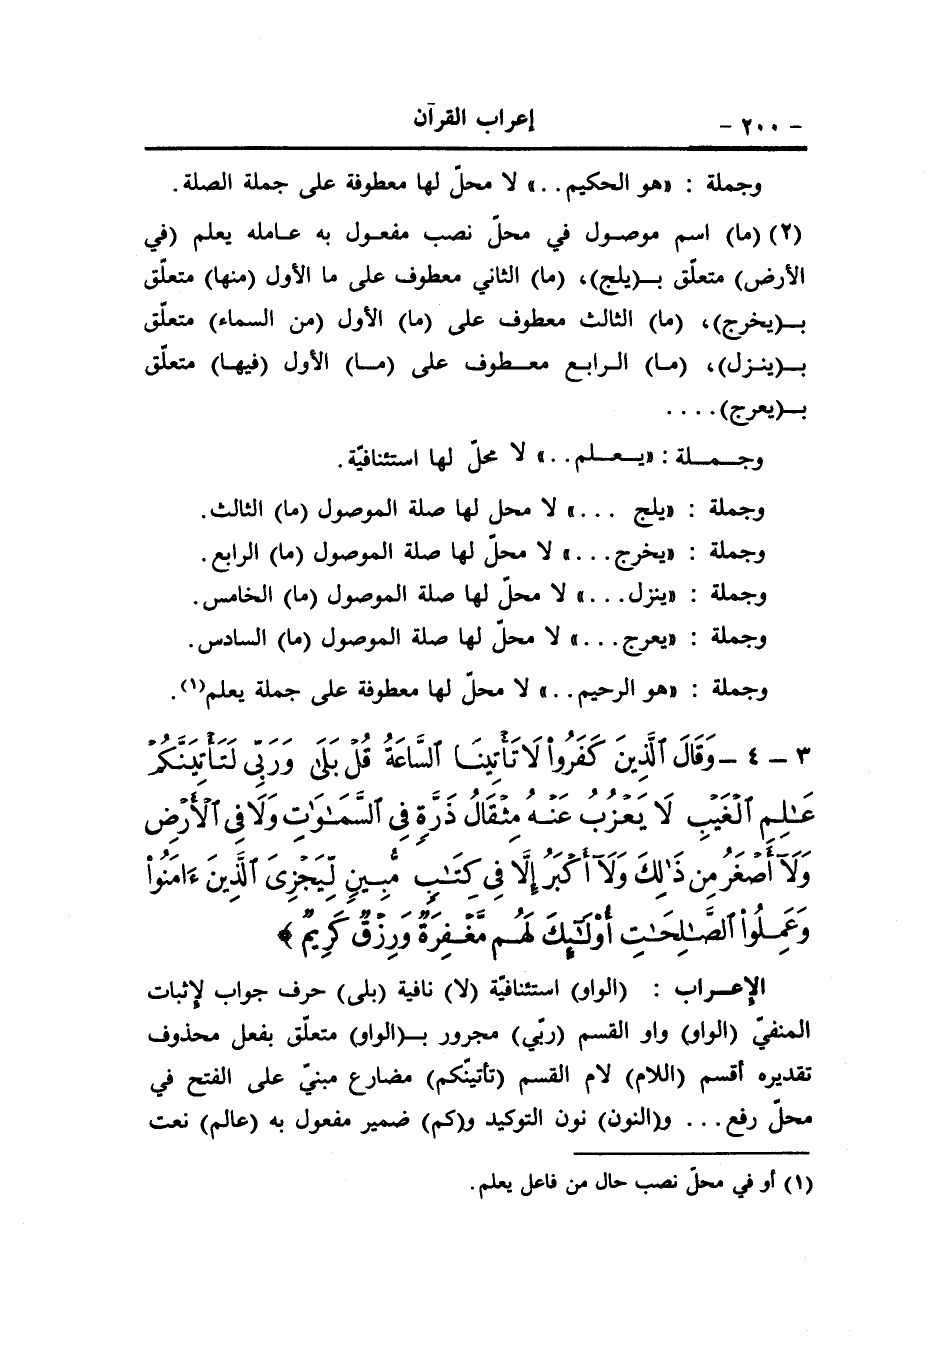 - ٢٠٠ - إعراب القرآن
وجملة : «هو الحكيم . .» لا محلّ لها معطوفة على جملة الصلة .
(٢) (ما) اسم موصول في محلّ نصب مفعول به عامله يعلم (في
الأرض) متعلّق بـ(يلج)، (ما) الثاني معطوف على ما الأول (منها) متعلّق
بـ(يخرج)، (ما) الثالث معطوف على (ما) الأول (من السماء) متعلّق
بـ(ينزل)، (ما) الرابع معطوف على (ما) الأول (فيها) متعلّق
بـ(يعرج) . . . .
وجملة : «يعلم . .» لا محلّ لها استئنافيّة .
وجملة : «يلج . . .» لا محل لها صلة الموصول (ما) الثالث .
وجملة : «يخرج . . .» لا محلّ لها صلة الموصول (ما) الرابع .
وجملة : «ينزل . . .» لا محلّ لها صلة الموصول (ما) الخامس .
وجملة : «يعرج . . .» لا محلّ لها صلة الموصول (ما) السادس .
وجملة : «هو الرحيم . .» لا محلّ لها معطوفة على جملة يعلم(١) .
٣ - ٤ - وَقَالَ ٱلَّذِينَ كَفَرُواْ لَا تَأْتِينَا ٱلسَّاعَةُ قُلْ بَلَىٰ وَرَبِّى لَتَأْتِيَنَّكُمْ
عَٰلِمِ ٱلْغَيْبِ لَا يَعْزُبُ عَنْهُ مِثْقَالُ ذَرَّةٍ فِى ٱلسَّمَٰوَٰتِ وَلَا فِى ٱلْأَرْضِ
وَلَآ أَصْغَرُ مِن ذَٰلِكَ وَلَآ أَكْبَرُ إِلَّا فِى كِتَٰبٍ مُّبِينٍ لِّيَجْزِىَ ٱلَّذِينَ ءَامَنُواْ
وَعَمِلُواْ ٱلصَّٰلِحَٰتِ أُوْلَٰٓئِكَ لَهُم مَّغْفِرَةٌ وَرِزْقٌ كَرِيمٌ ﴾
الإعراب : (الواو) استئنافيّة (لا) نافية (بلى) حرف جواب لإثبات
المنفيّ (الواو) واو القسم (ربّي) مجرور بـ(الواو) متعلّق بفعل محذوف
تقديره أقسم (اللام) لام القسم (تأتينّكم) مضارع مبنيّ على الفتح في
محلّ رفع . . . و(النون) نون التوكيد و(كم) ضمير مفعول به (عالم) نعت
(١) أو في محلّ نصب حال من فاعل يعلم .